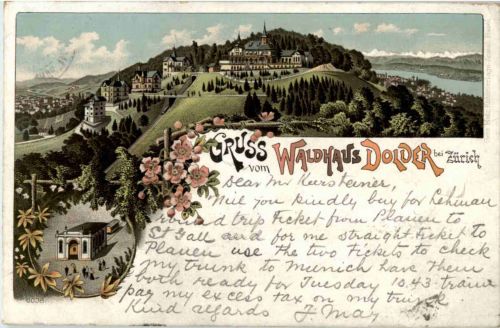 GRUSS vom WALDHAUS DOLDER bei Zürich
Dear Mr Kursteiner,
Will you kindly buy for Lehman
round trip ticket from Plauen to
St Gall and for me straight ticket to
Plauen use the two tickets to check
my trunk to Munich have them
both ready for Tuesday 10.43 train
pay my excess tax on my trunk
Kind regards J May